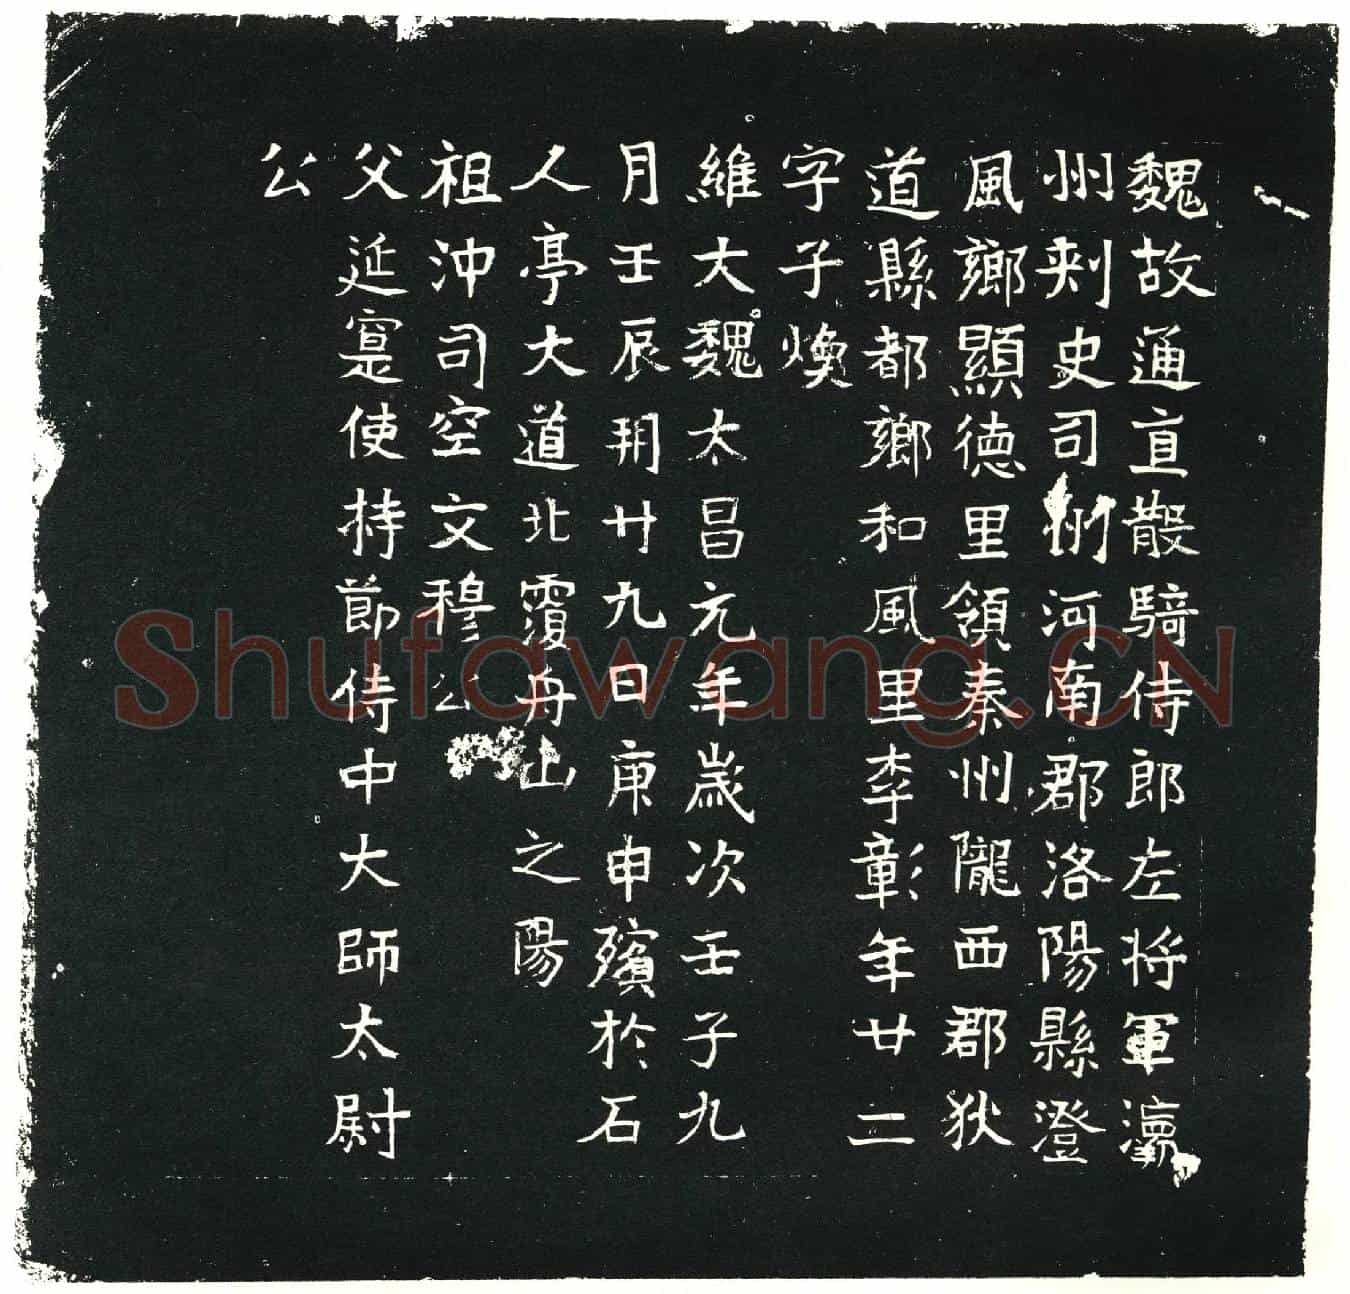 魏故通直散騎侍郎左将軍瀛
州刾史司州河南郡洛陽縣澄
風鄉顯德里領秦州隴西郡狄
道縣都鄉和風里李彰年廿二
字子煥
維大魏太昌元年歲次壬子九
月壬辰朔廿九日庚申殯於石
人亭大道北覆舟山之陽
祖沖司空文穆公
父延寔使持節侍中大師太尉
公
Shufawang.CN